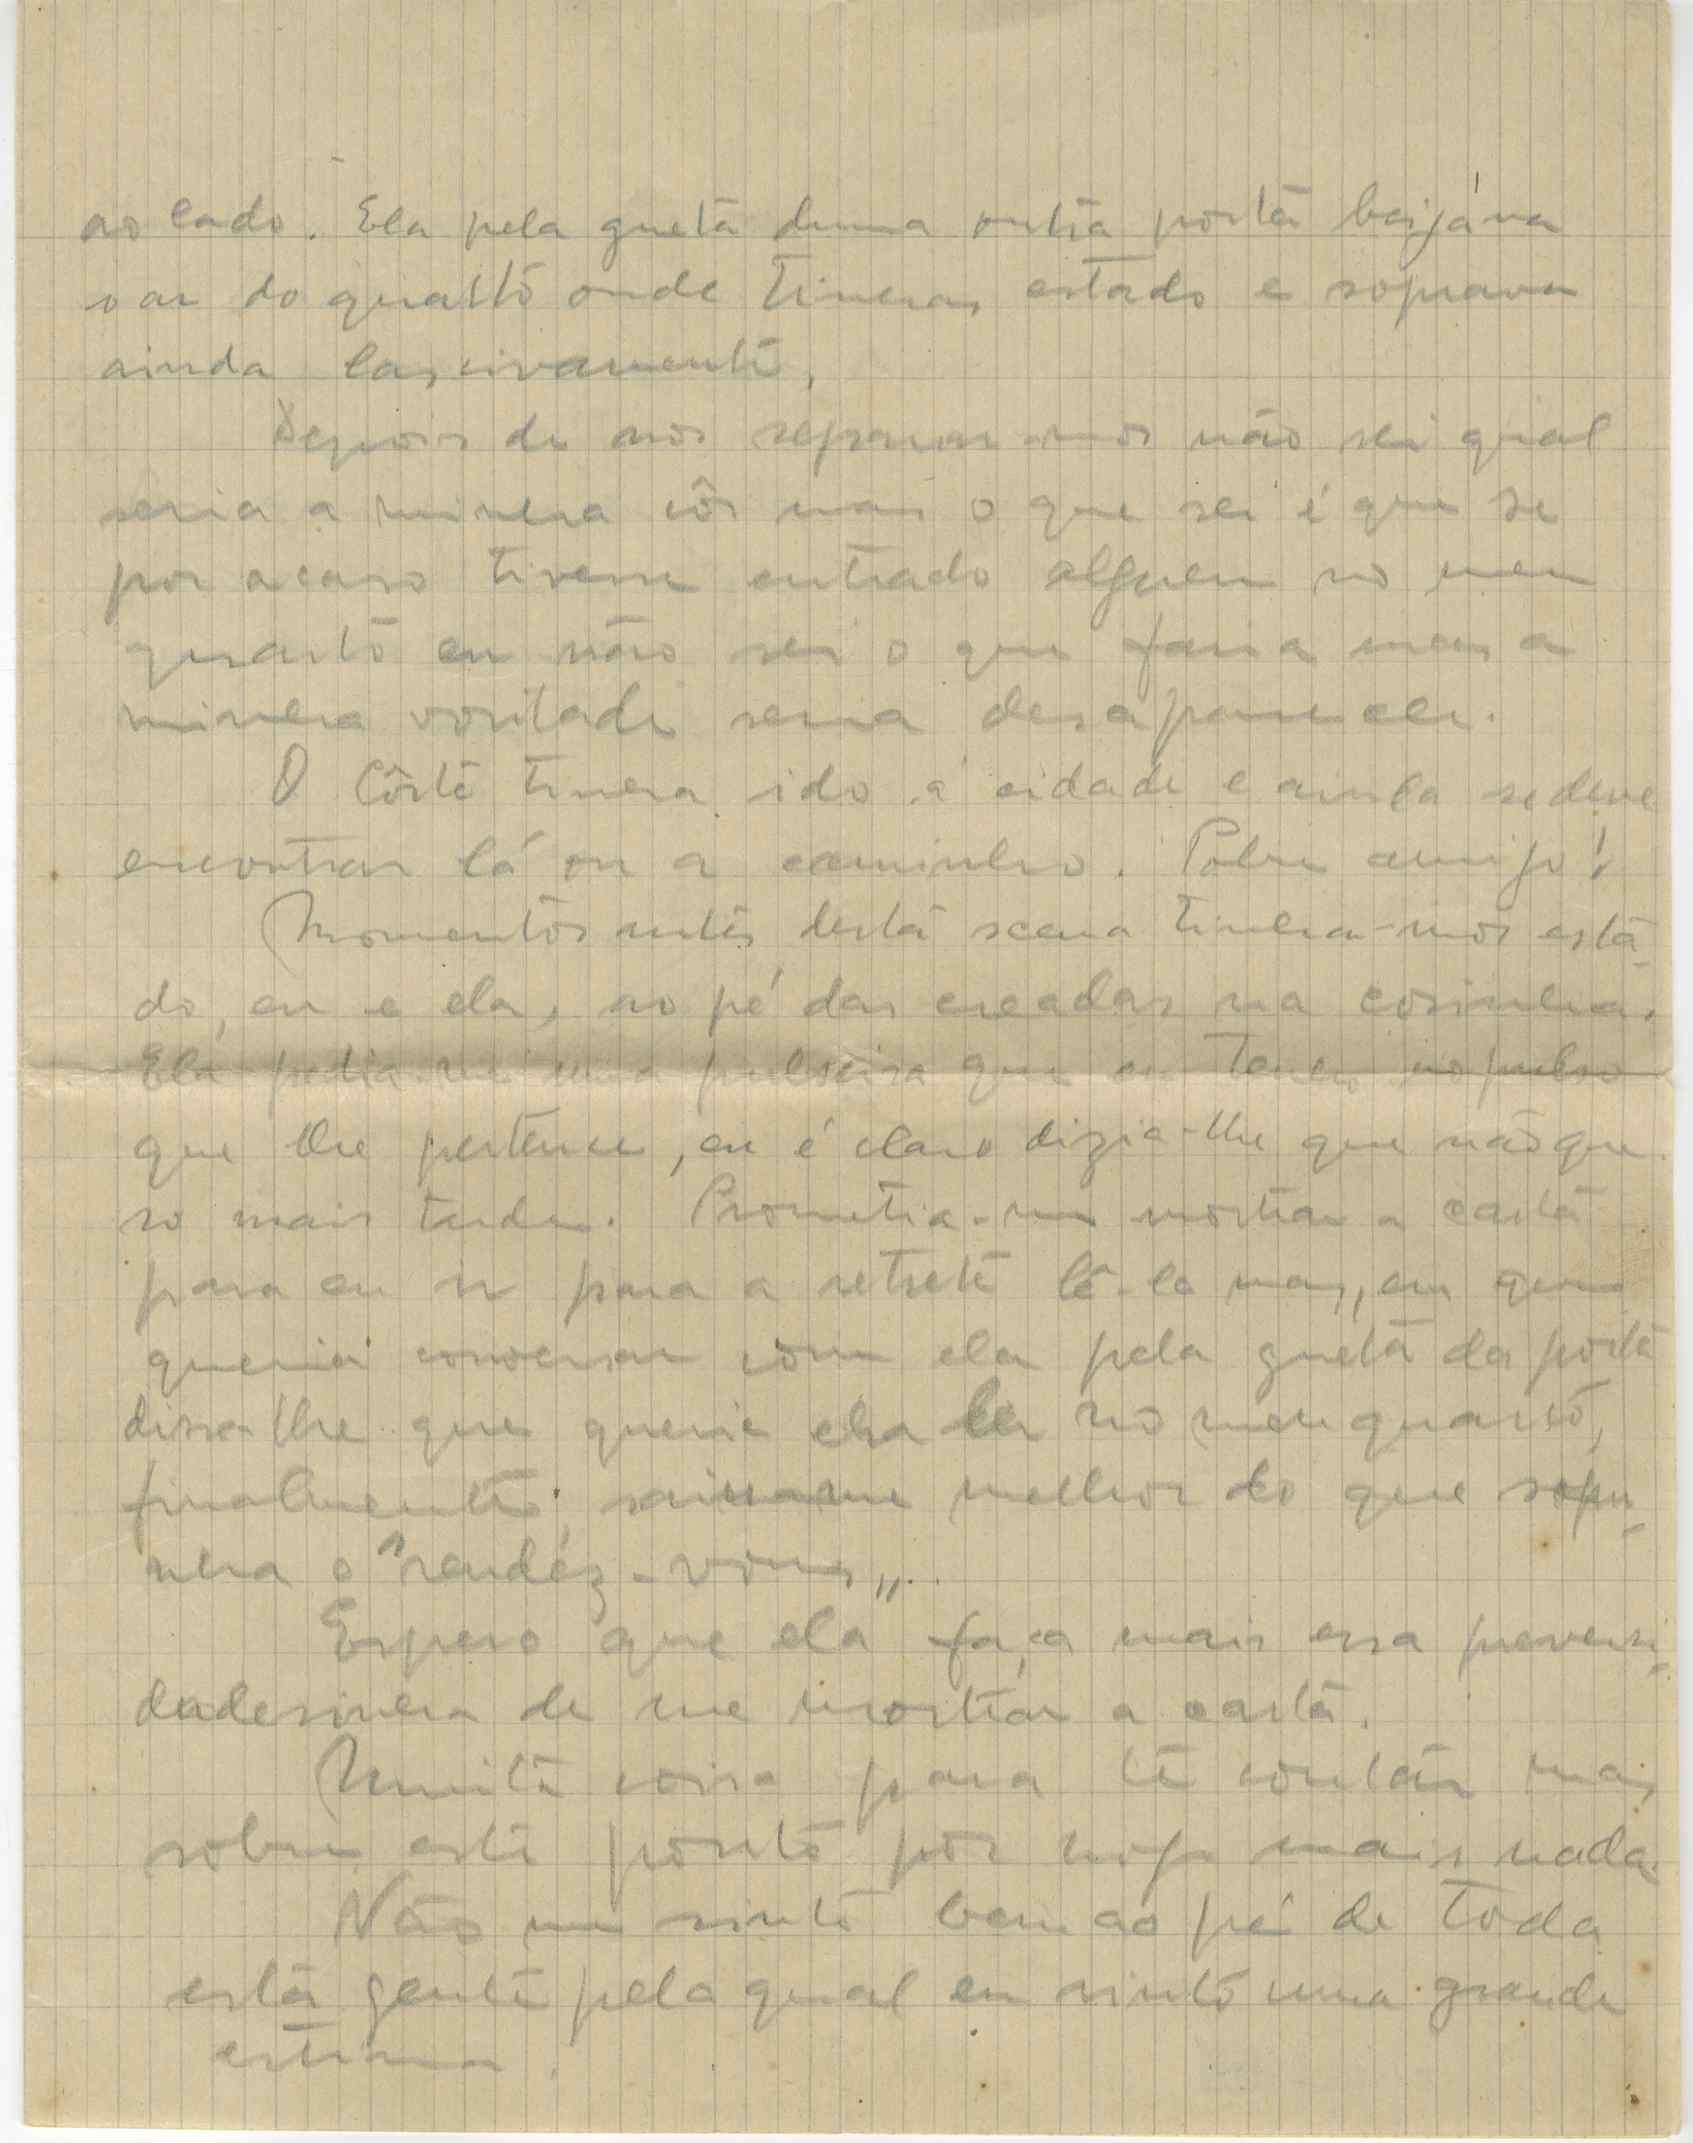 ao lado. Ela pela greta duma outra porta beijáva
o ar do quarto onde tinhas estado e soprava
ainda lascivamente.
Depois de nos separar-mos não sei qual
seria a minha côr mas o que sei é que se
por acaso tivesse entrado alguem no meu
quarto eu não sei o que faria mas a
minha vontade seria desaparecer.
O Côrte tinha ido á cidade e ainda se deve
encontrar lá ou a caminho. Pobre amigo!
Momentos antes desta scena tinha-mos esta-
do, eu e ela, ao pé das creadas na cosinha.
Ela pedia-me uma pulseira que eu tenho no pulso
que lhe pertence, eu é claro dizia-lhe que não que
so mais tarde. Prometia-me mostrar a carta
para eu ir para a retrete lê-la mas, eu que
queria conversar com ela pela greta da porta
disse-lhe que queria ler no meu quarto,
finalmente, melhor do que sopu-
nha o "rendéz-vous".
Espero que ela faça mais essa preversi-
dadesinha de me mostrar a carta.
Muita coisa para te contar mas
sobre este ponto por hoje mais nada.
Não me sinto bem ao pé de toda
esta gente pela qual eu sinto uma grande
estima.